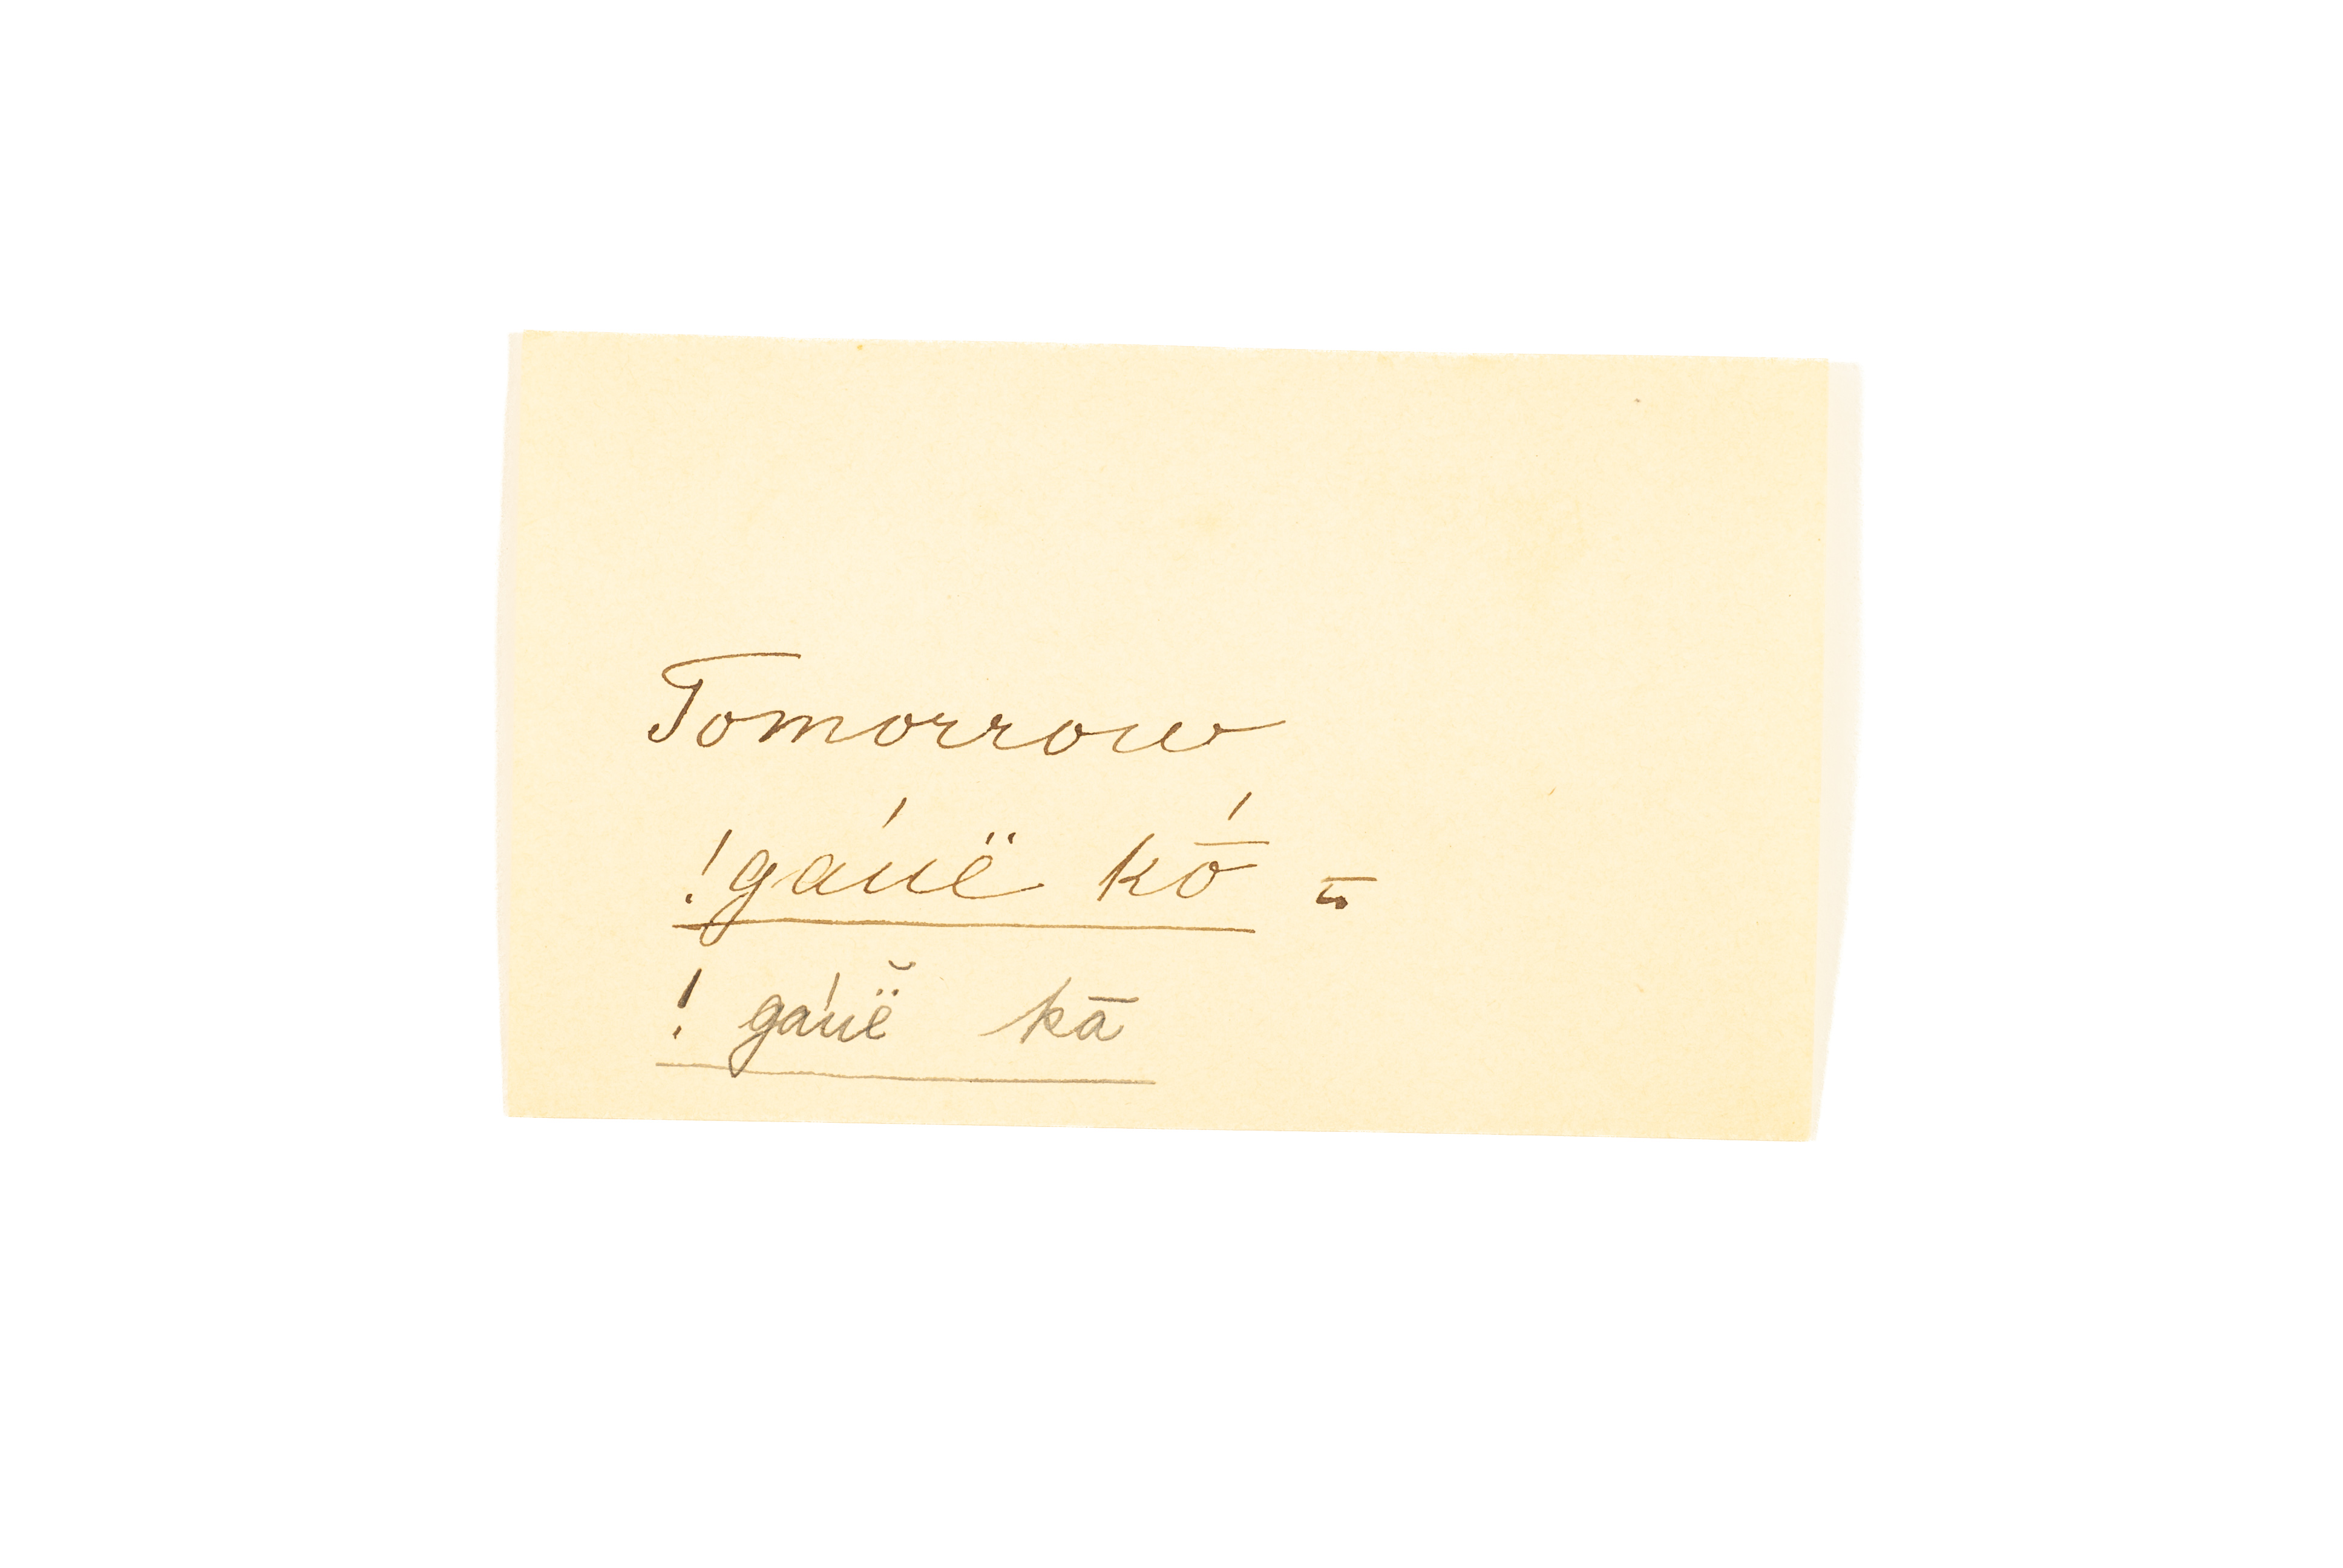 Tomorrow
!gáuë kṓ =
! gáuë̆ kā